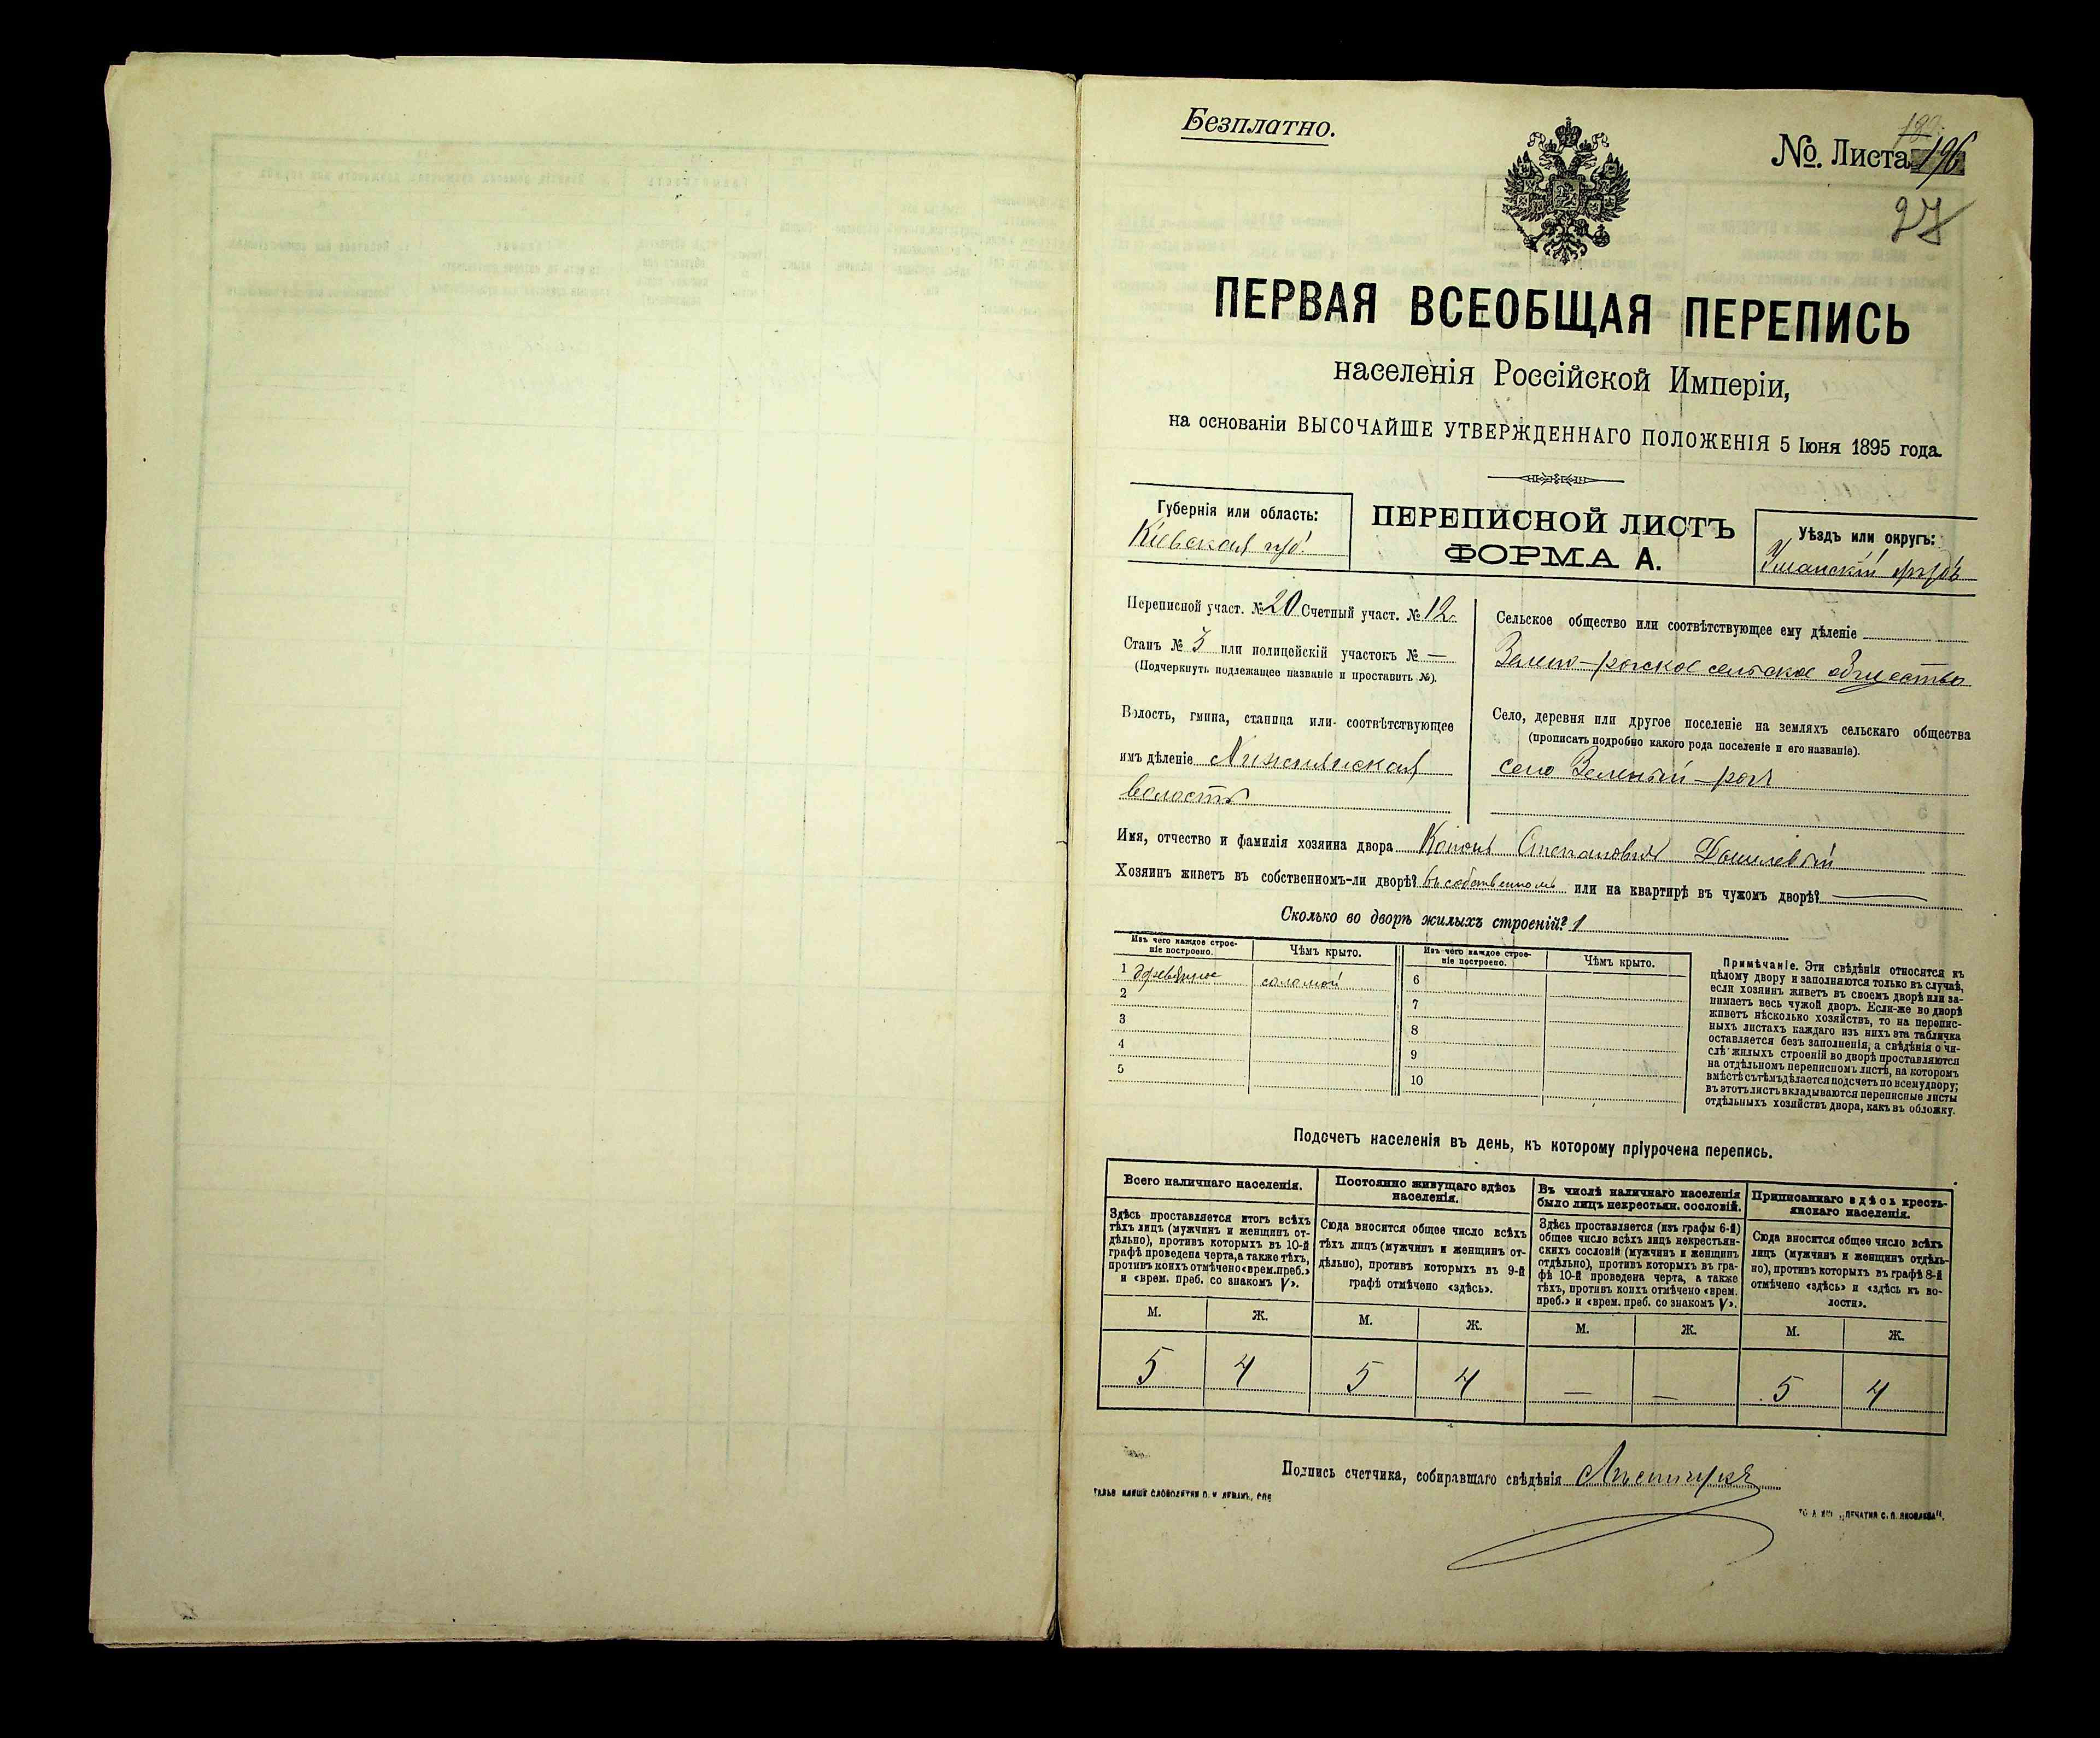 Безплатно.
№. Листа 196
27
ПЕРВАЯ ВСЕОБЩАЯ ПЕРЕПИСЬ
населенія Россійской Имперіи,
на основаніи ВЫСОЧАЙШЕ УТВЕРЖДЕННАГО ПОЛОЖЕНІЯ 5 Іюня 1895 года.
Губернія или область:
Кіевская губ.
ПЕРЕПИСНОЙ ЛИСТЪ
ФОРМА А.
Уѣздъ или округъ:
Уманскій уѣздъ
Переписной участ. № 20 Счетный участ. № 12.
Станъ № 3 или полицейскій участокъ № —
(Подчеркнуть подлежащее названіе и проставить №).
Волость, гмина, станица или соотвѣтствующее
имъ дѣленіе
волость
Сельское общество или соотвѣтствующее ему дѣленіе
Зелено-рогское сельское общество
Село, деревня или другое поселеніе на земляхъ сельскаго общества
(прописать подробно какого рода поселеніе и его названіе).
село Зеленый-рогъ
Имя, отчество и фамилія хозяина двора Кононъ Степановичъ
Хозяинъ живетъ въ собственномъ-ли дворѣ? въ собственномъ или на квартирѣ въ чужомъ дворѣ? —
Сколько во дворѣ жилыхъ строеній? 1
Изъ чего каждое строе-
ніе построено.
Чѣмъ крыто.
Изъ чего каждое строе-
ніе построено.
Чѣмъ крыто.
1 деревянное соломой 6
2 7
3 8
4 9
5 10
Примѣчаніе. Эти свѣдѣнія относятся къ
цѣлому двору и заполняются только въ случаѣ,
если хозяинъ живетъ въ своемъ дворѣ или за-
нимаетъ весь чужой дворъ. Если-же во дворѣ
живетъ нѣсколько хозяйствъ, то на перепис-
ныхъ листахъ каждаго изъ нихъ эта табличка
оставляется безъ заполненія, а свѣдѣнія о чи-
слѣ жилыхъ строеній во дворѣ проставляются
на отдѣльномъ переписномъ листѣ, на которомъ
вмѣстѣ съ тѣмъ дѣлается подсчетъ по всему двору;
въ этотъ листъ вкладываются переписные листы
отдѣльныхъ хозяйствъ двора, какъ въ обложку.
Подсчетъ населенія въ день, къ которому пріурочена перепись.
Всего наличнаго населенія.
Здѣсь проставляется итогъ всѣхъ
тѣхъ лицъ (мужчинъ и женщинъ от-
дѣльно), противъ которыхъ въ 10-й
графѣ проведена черта, а также тѣхъ,
противъ коихъ отмѣчено «врем. преб.»
и «врем. преб. со знакомъ V».
Постоянно живущаго здѣсь
населенія.
Сюда вносится общее число всѣхъ
тѣхъ лицъ (мужчинъ и женщинъ от-
дѣльно), противъ которыхъ въ 9-й
графѣ отмѣчено «здѣсь».
Въ числѣ наличнаго населенія
было лицъ некрестьян. сословій.
Здѣсь проставляется (изъ графы 6-й)
общее число всѣхъ лицъ некрестьян-
скихъ сословій (мужчинъ и женщинъ
отдѣльно), противъ которыхъ въ гра-
фѣ 10-й проведена черта, а также
тѣхъ, противъ коихъ отмѣчено «врем.
преб.» и «врем. преб. со знакомъ V».
Приписаннаго здѣсь кресть-
янскаго населенія.
Сюда вносится общее число всѣхъ
лицъ (мужчинъ и женщинъ отдѣль-
но), противъ которыхъ въ графѣ 8-й
отмѣчено «здѣсь» и «здѣсь къ во-
лости».
М. Ж. М. Ж. М. Ж. М. Ж.
5 4 5 4 — — 5 4
Подпись счетчика, собиравшаго свѣдѣнія